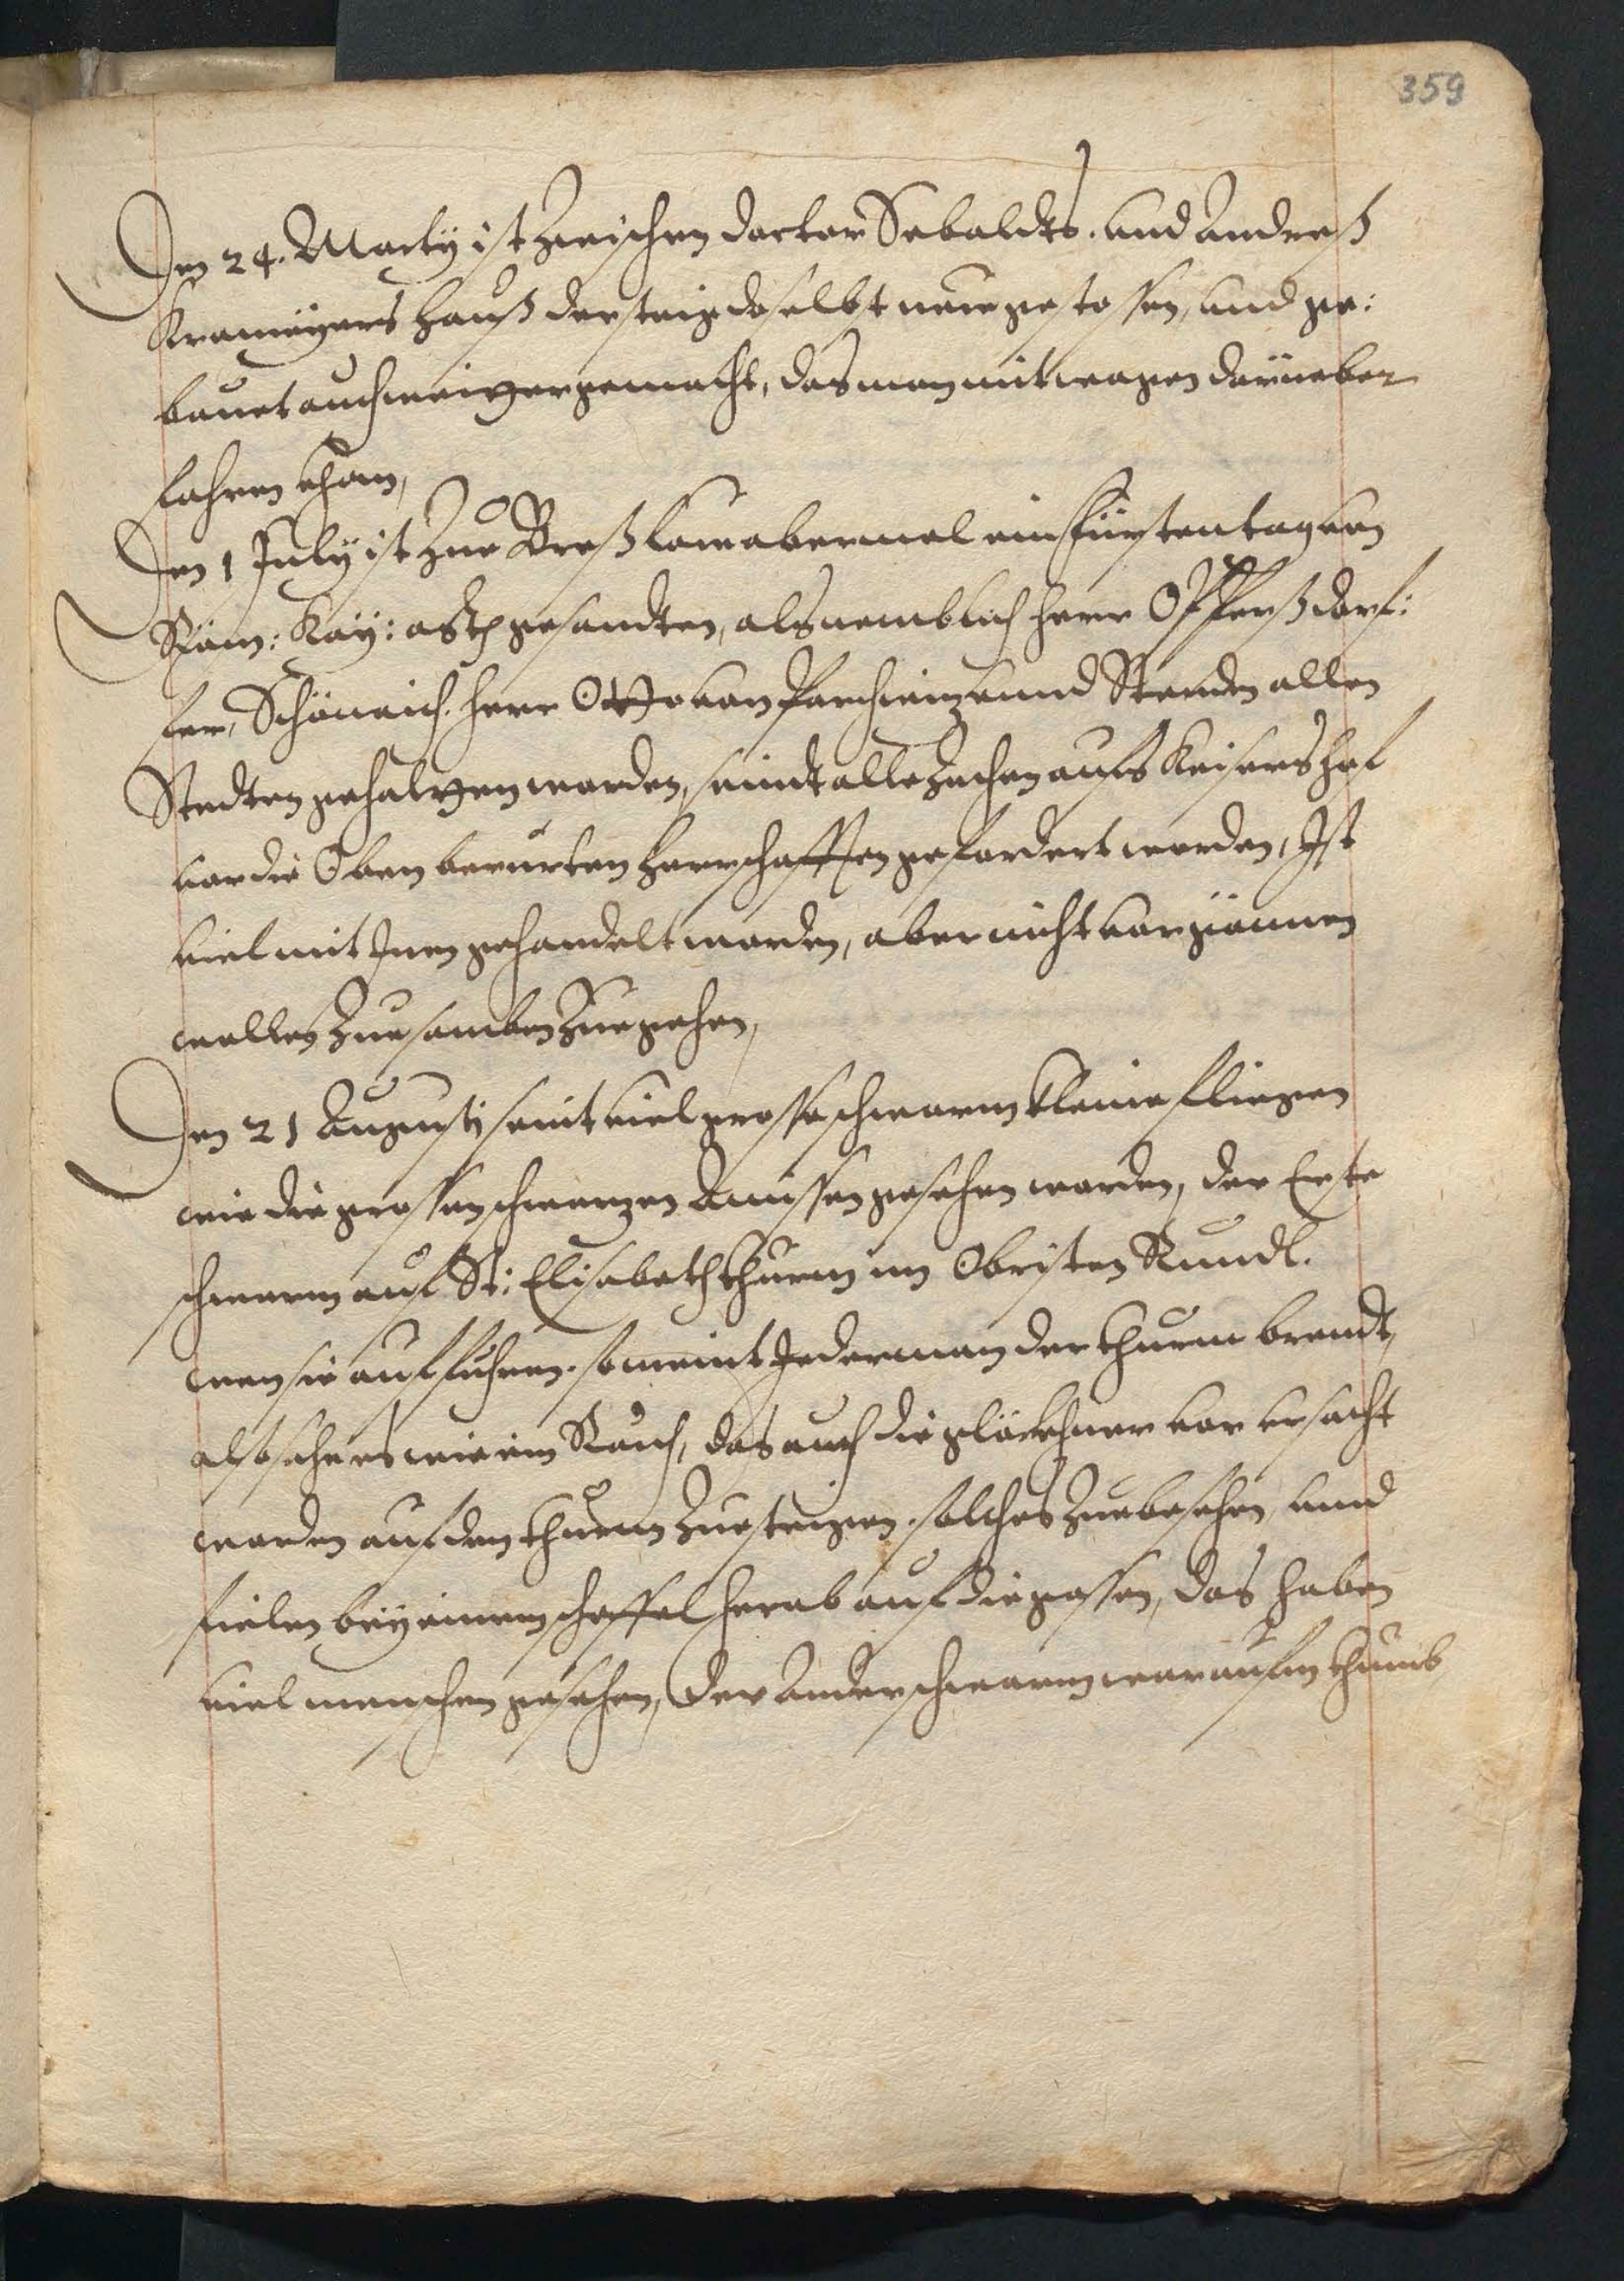 359
Den 24. Marty ist zwischen docter Sebaldts. und Anders
Krameÿers hauß der steig doselbst neue gestossen, und ge:
bauet auch weitter gemacht, das man mit wagen darüeber
fahren khan,
Den 1 July ist zue Breßlaw abermal ein fürstentag von
Röm: Kaÿ: gesandten, als nemblich herr Opperßdorf:
fer, Schönaich. herr Otto von Parchwiz unnd Stenden allen
Stedten gehaltten worden, seindt alle Zechen aufs Keisers hof
vor die Oben berurten herrschafften gefordert worden, Ist
viel mit Inen gehandelt worden, aber nicht vorgönnen
wollen zuesamben zuegehen,
Den 21 Augusti seint viel grosse schwarm kleine fliegen
wie die grossen schwarzen Amissen gesehen worden, der Erste
schwarm auf St: Elisabeth thurm im Obristen Rundl.
wen sie auffuhren. so meint Jederman der thurm brendt,
also sahe es wie ein Rauch, das auch die glöckhner vor ursacht
worden auf den thurm zue steigen. solches zue besehen, unnd
fielen beÿ einem scheffel herab auf die gassen, das haben
viel menschen gesehen, Der Ander schwarm war aufm thumb